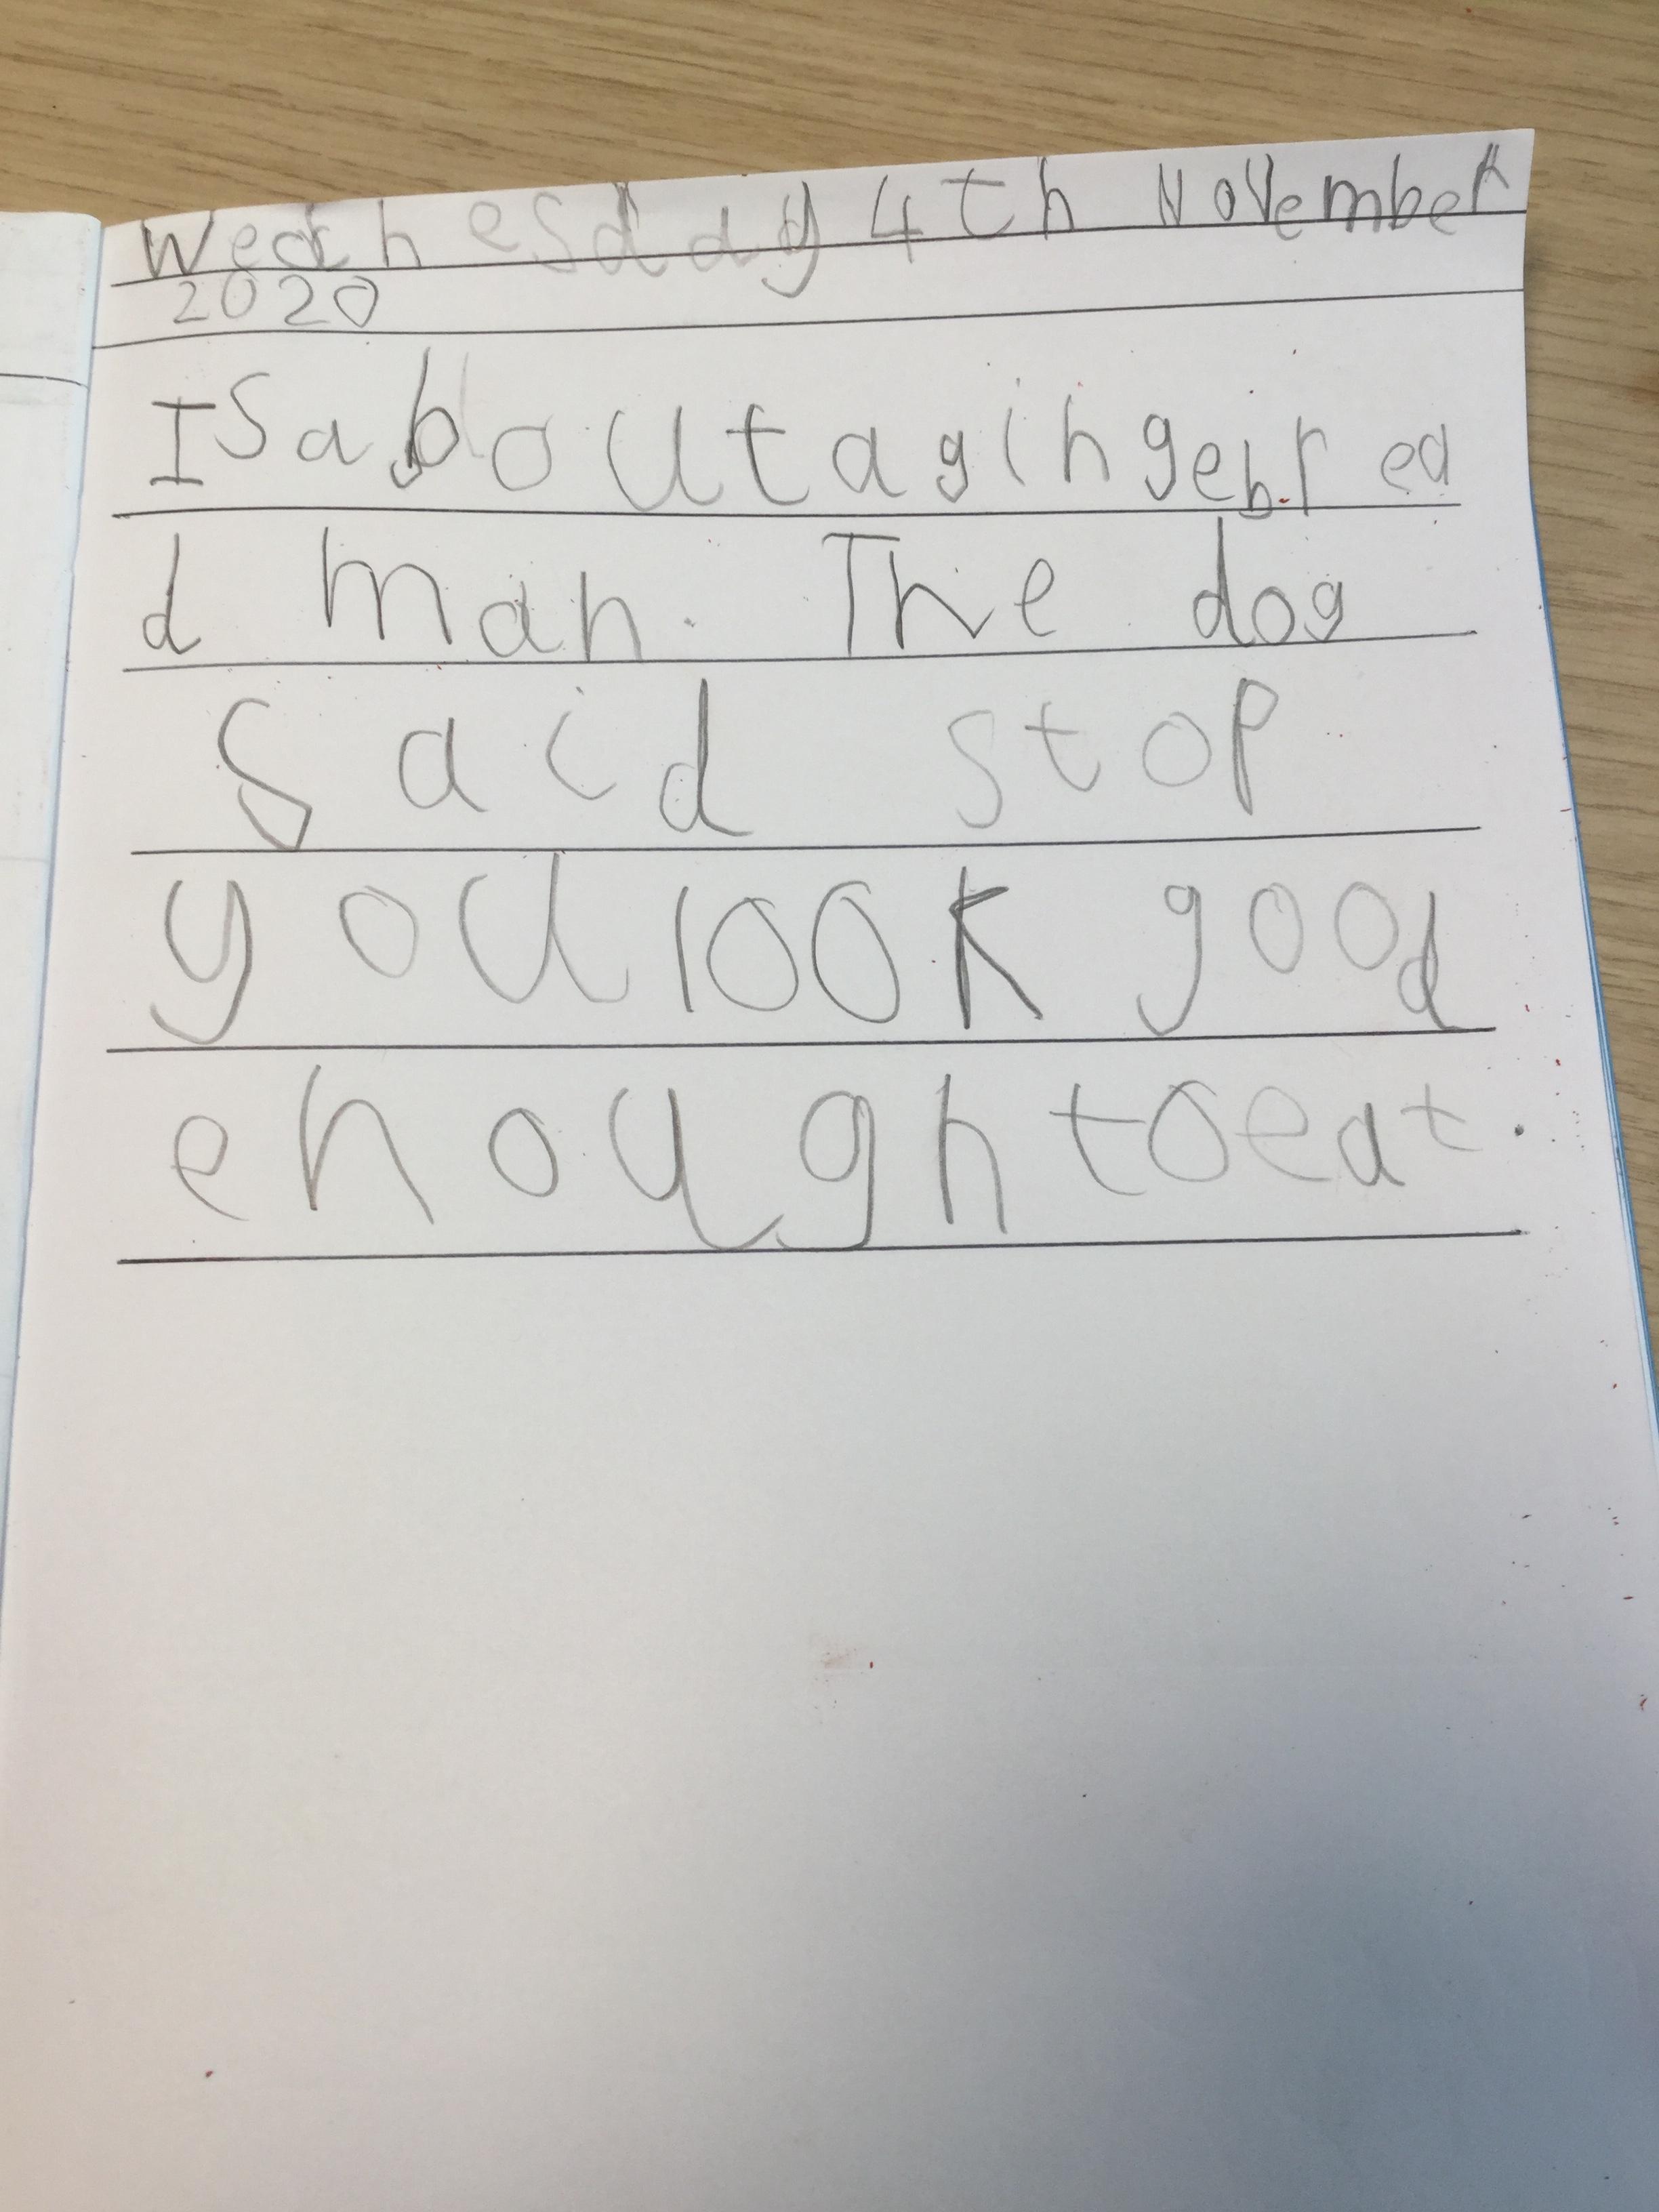 Wednesday 4th November
2020
Is about a gingebrea
d man. The dog
said stop
you look good
enough to eat.